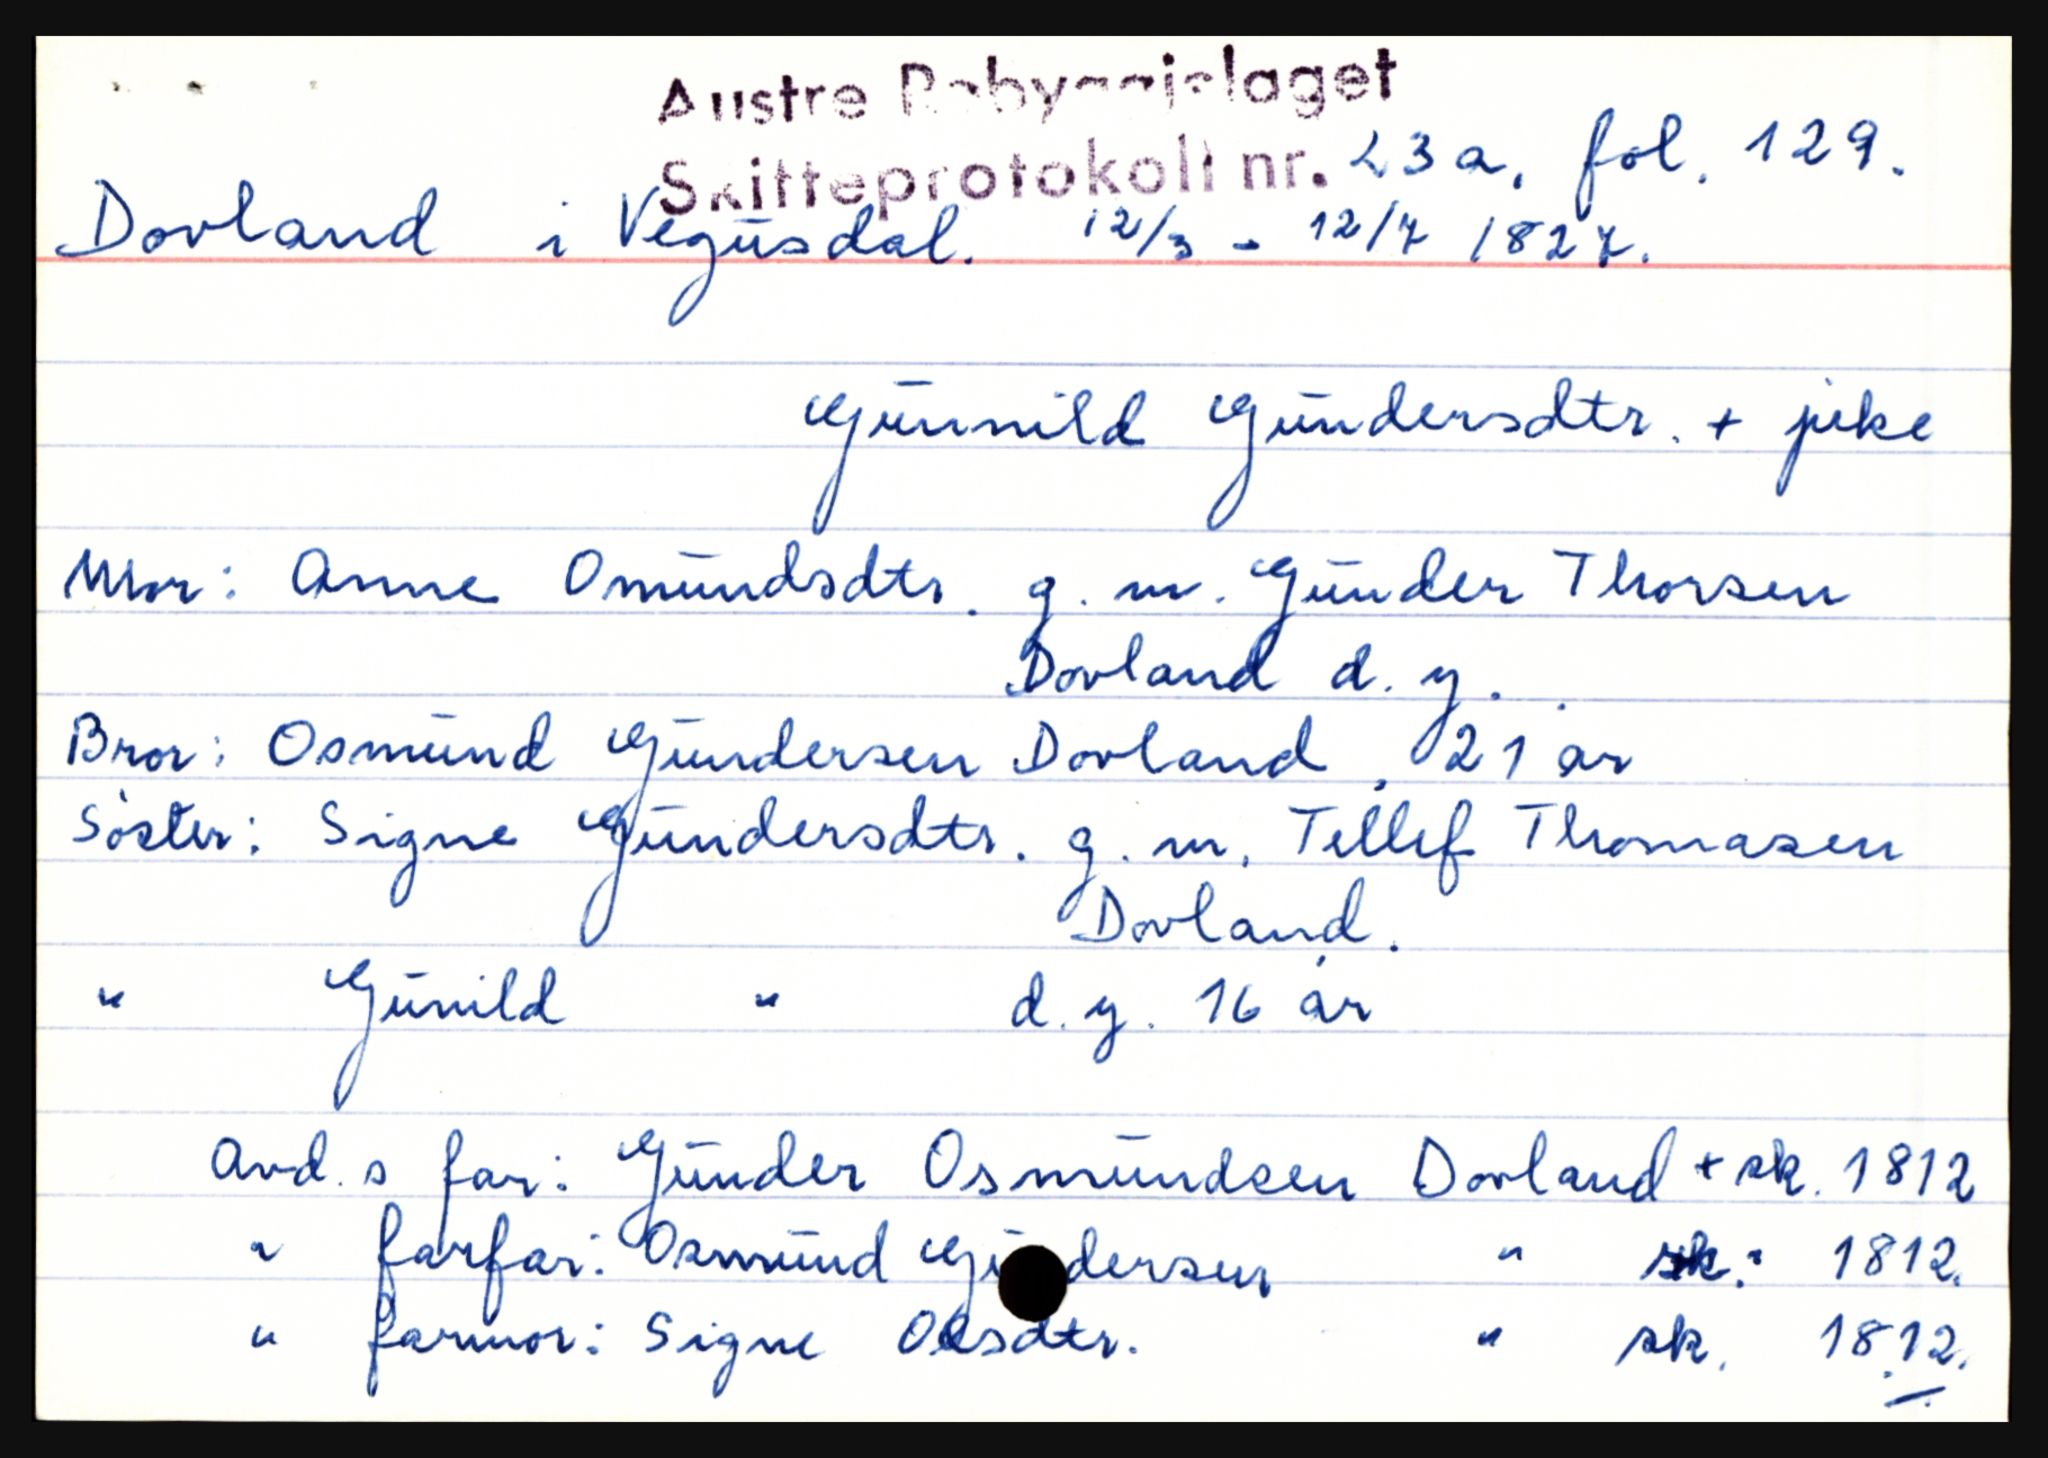 Austre Robyggjelaget
Skifteprotokoll nr. 23a, fol. 129.
Dovland i Vegusdal. 12/3 - 12/7 1827.
Gunnild Gundersdtr. + pike
Mor: Anne Omundsdtr. g. m. Gunder Thorsen
Dovland d. y.
Bror: Osmund Gundersen Dovland, 21 år
Söster: Signe Gundersdtr. g. m. Tellef Thomasen
Dovland.
" Gunild " d. y. 16 år
Avd. s far: Gunder Osmundsen Dovland + sk. 1812
" farfar: Osmund Gundersen " sk. 1812.
" farmor: Signe Olsdtr. " sk. 1812.